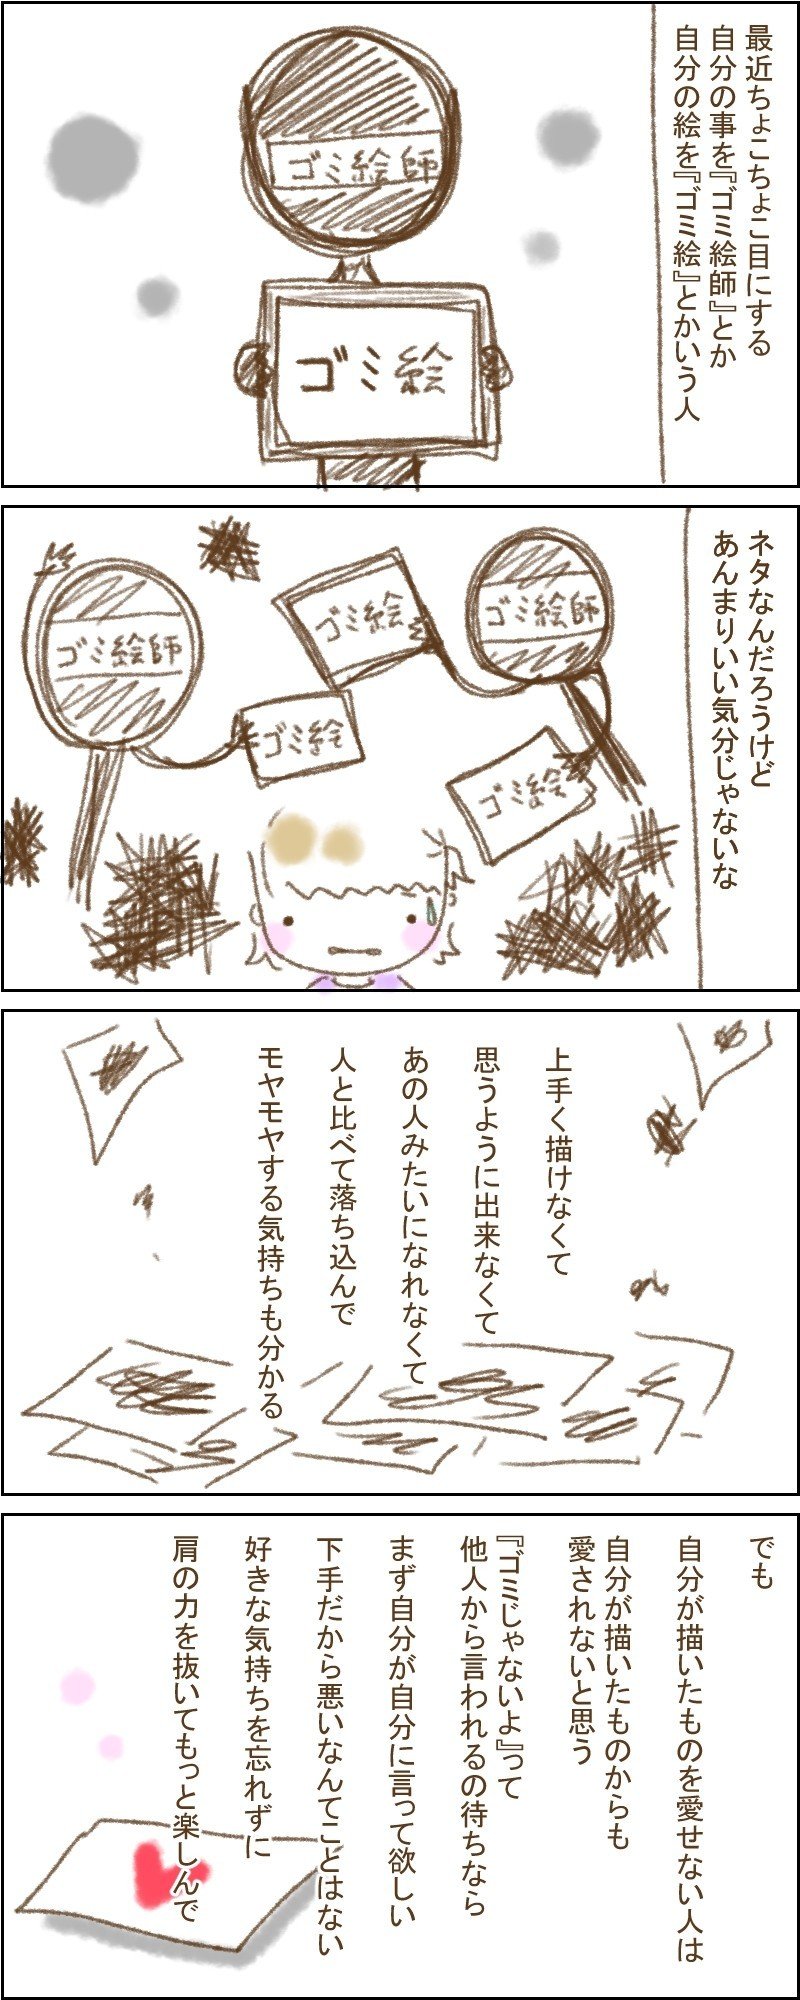 最近ちょこちょこ目にする
自分の事を『ゴミ絵師』とか
自分の絵を『ゴミ絵』とかいう人
ゴミ絵師
ゴミ絵
ネタなんだろうけど
あんまりいい気分じゃないな
ゴミ絵師
ゴミ絵
ゴミ絵
ゴミ絵師
ゴミ絵
上手く描けなくて
思うように出来なくて
あの人みたいになれなくて
人と比べて落ち込んで
モヤモヤする気持ちも分かる
でも
自分が描いたものを愛せない人は
自分が描いたものからも
愛されないと思う
『ゴミじゃないよ』って
他人から言われるの待ちなら
まず自分が自分に言って欲しい
下手だから悪いなんてことはない
好きな気持ちを忘れずに
肩の力を抜いてもっと楽しんで